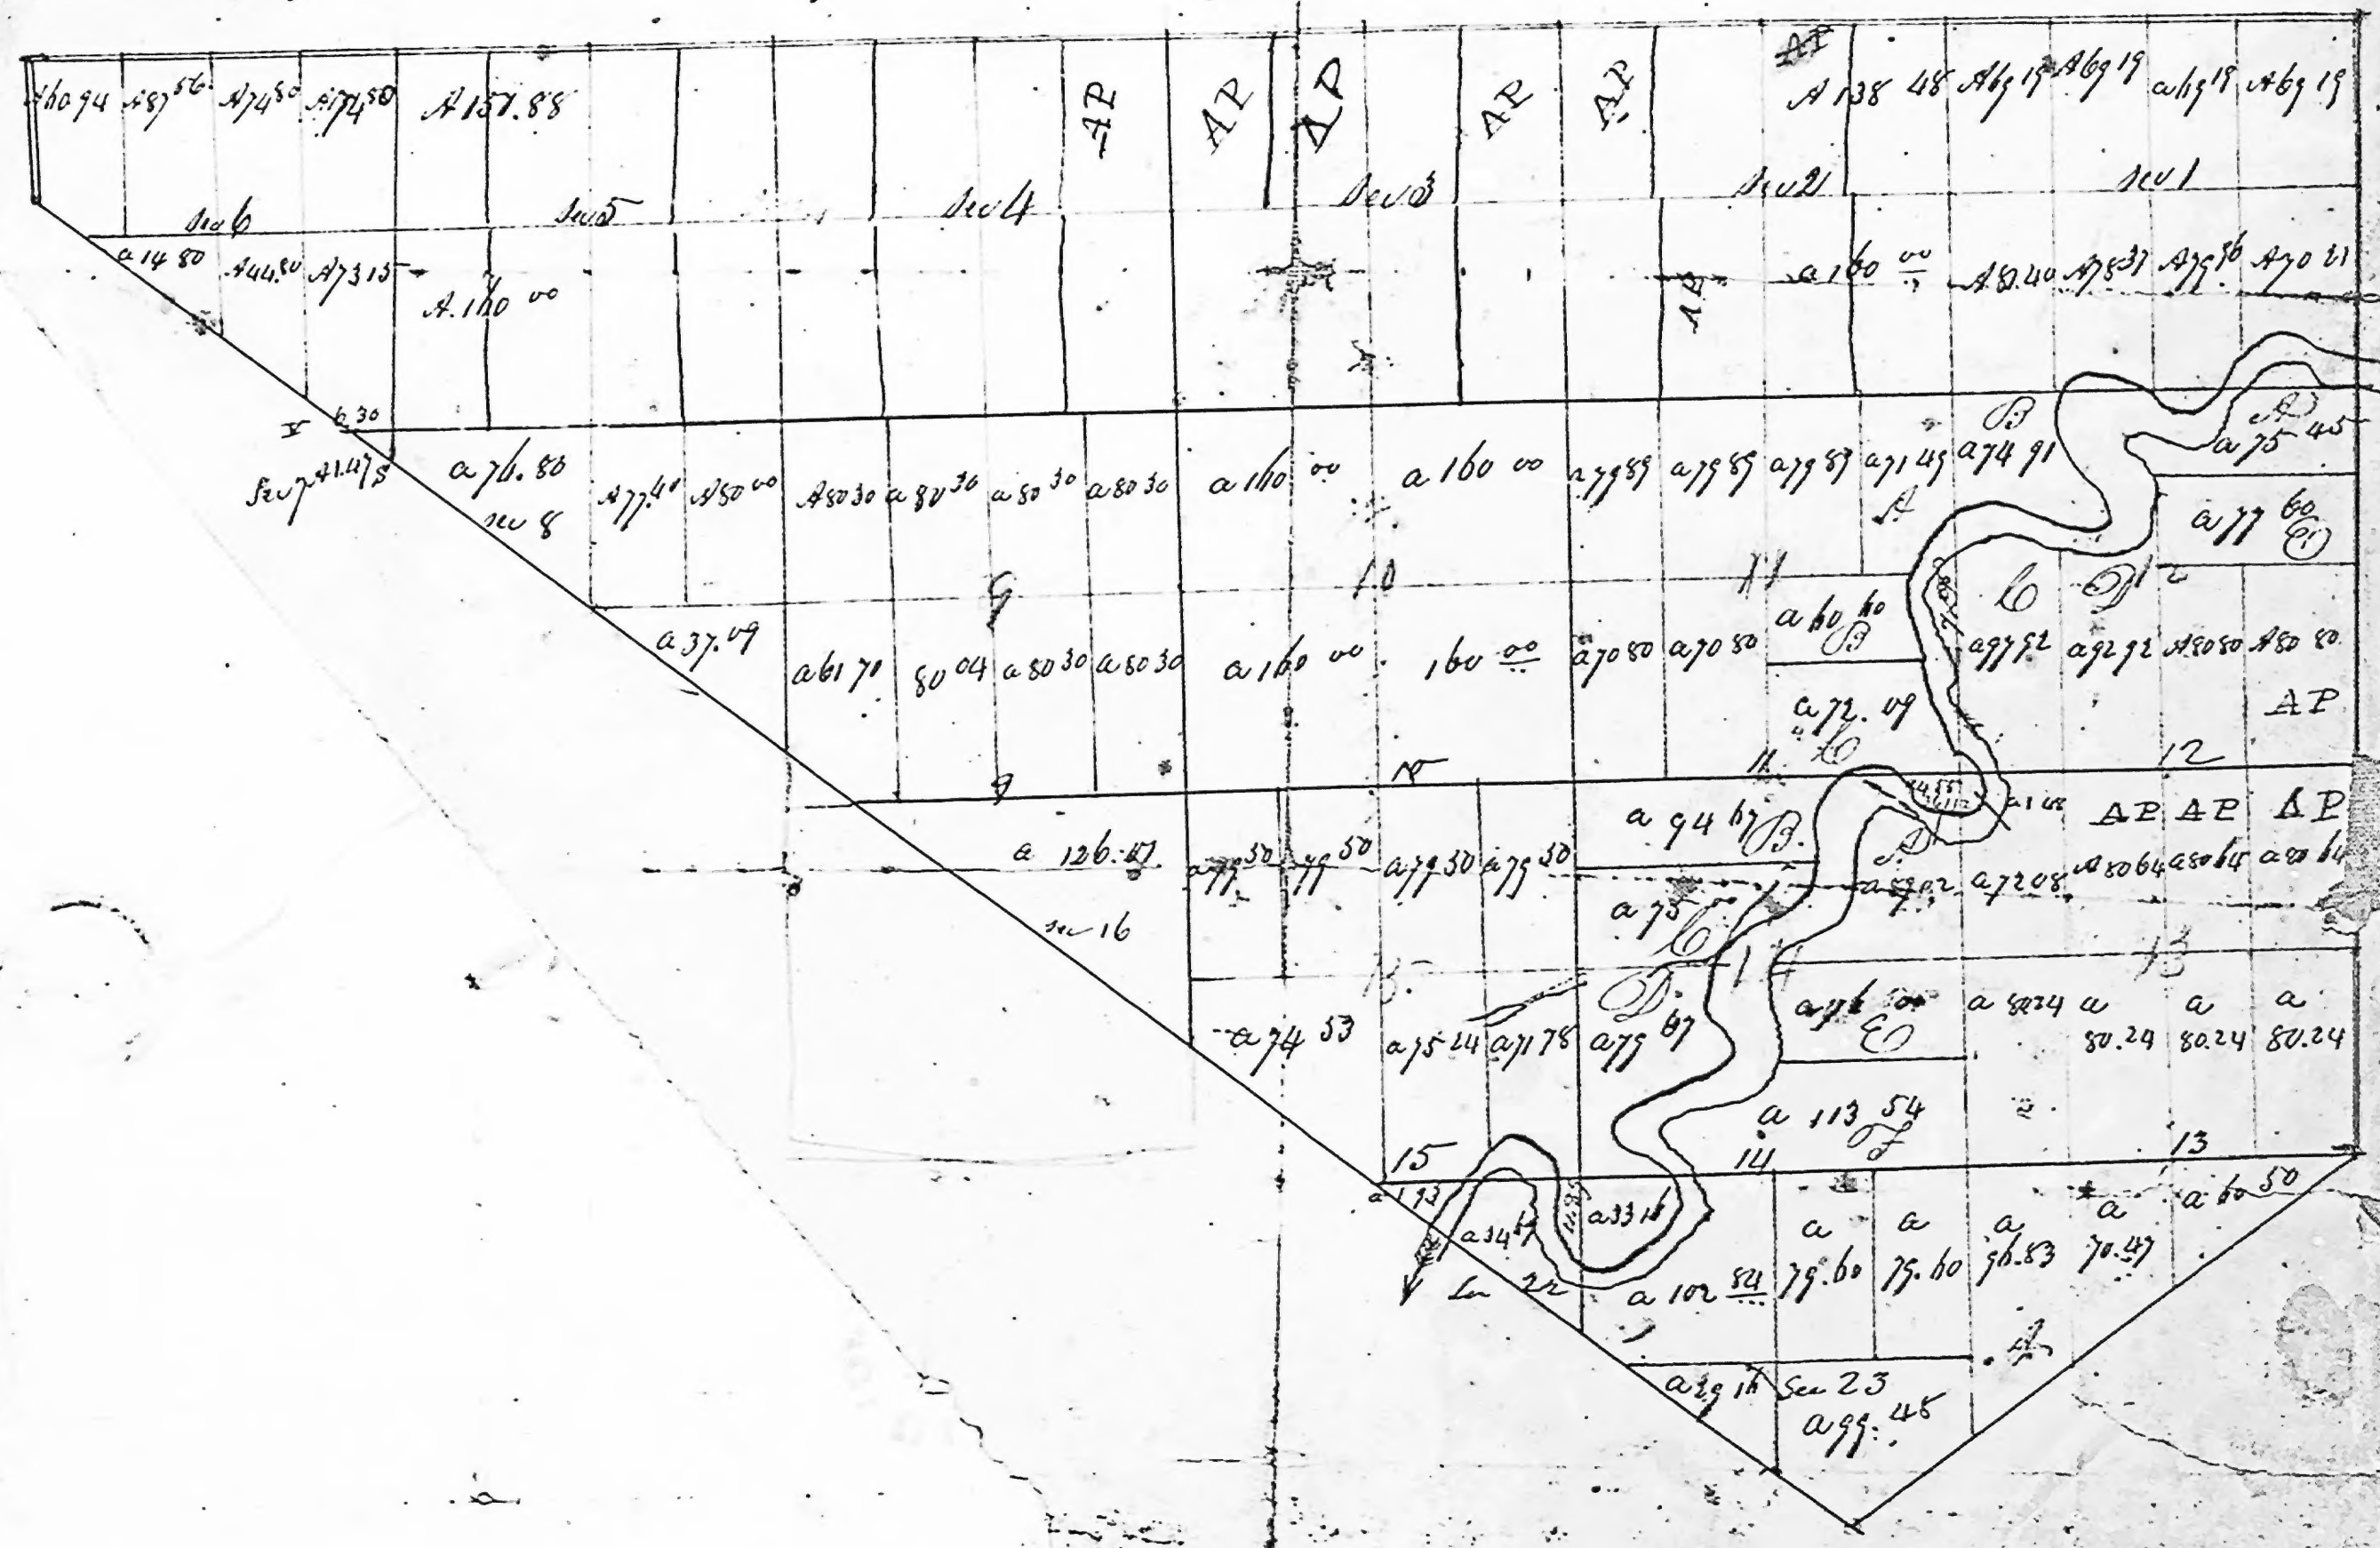 A87 56 A74 80 A74 80 A 151.88 AP AP AP AP AP AP A 138 48 A69 19 A69 19 a69 19 A69 19
Sec 6 Sec 5 Sec 4 Sec 3 Sec 2 Sec 1
a 14 80 A44.80 A73 15 A.160 00 AP a 160 00 A81.40 A78 37 A79 56 A70 21
6 30
Sec 7 a 76.80 A77.40 A80 00 A80 30 a 80 30 a 80 30 a 80 30 a 160 00 a 160 00 a79 89 a79 89 a79 89 a71 49 B a74 91 A a 75 45
sec 8 A a 77 60 E
9 10 11 C D 12
a 37.09 a 61 70 80 04 a 80 30 a 80 30 a 160 00 160 00 a70 80 a70 80 a 60 60 B a97 92 a92 92 A80 80 A80 80
a 72.09 C AP
9 11 12
a 126. a79 50 79 50 a79 50 a79 50 a 94 67 B. A AP AP AP
a72 08 A80 64 a80 64 a80 64
sec 16 a 75 00 C
15 14 13
a 74 53 a75 24 a71 78 D a79 67 a76 E a 80 24 a 80.24 a 80.24 a 80.24
a 113 54 F
15 14 13
a 1 93 a34 67 a33 16 a 79.60 a 79.60 a 96.83 a 70.47 a 60 50
Sec 22 a 102 84
A
a29 16 Sec 23
a 99.45